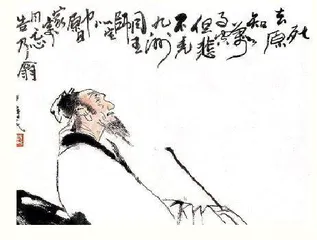 死去
原知
萬事
空
但悲
不見
九州
同王
師北定
中
原日
家祭
無忘
告乃翁